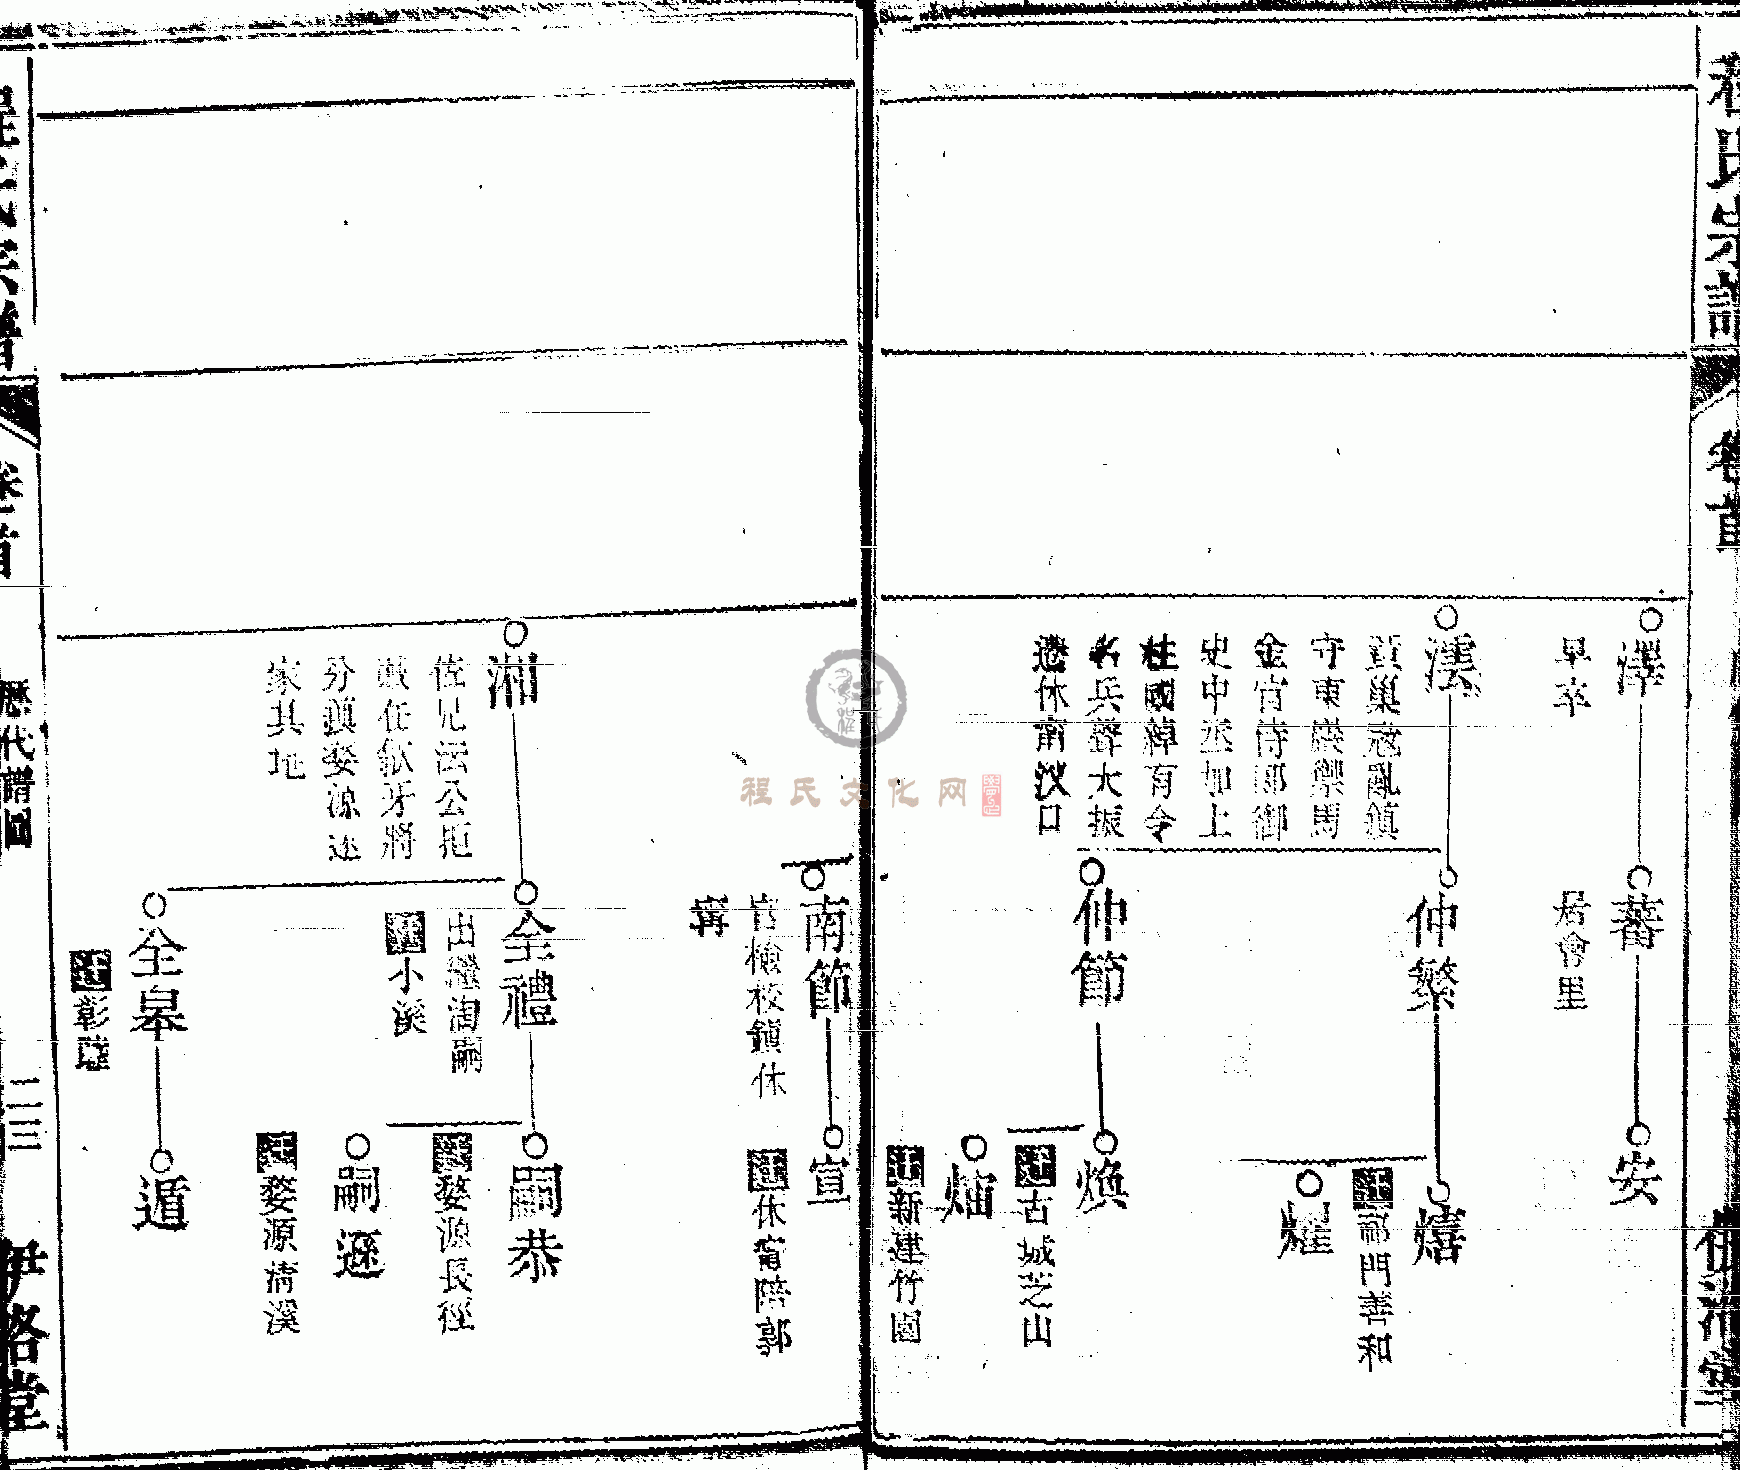 程氏宗譜
卷首
澤
早卒
蕃
居會里
安
澐
黃巢寇亂鎮
守東密巖禦馬
金官侍郎御
史中丞加上
柱國綽有令
名兵聲大振
遷休南汊口
仲繁
熺
遷祁門善和
燿
仲節
煥
遷古城芝山
遷新建竹園
南節
官檢校鎮休
甯
宣
遷休甯陪郭
湘
佐兄澐公拒
敵任歙牙將
分鎮婺源遂
家其地
全禮
出繼淘嗣
遷小溪
嗣恭
遷婺源長徑
嗣遜
遷婺源清溪
全皋
遷彰
遁
程氏宗譜
卷首
歷代譜圖
二三
伊洛堂
程氏文化网